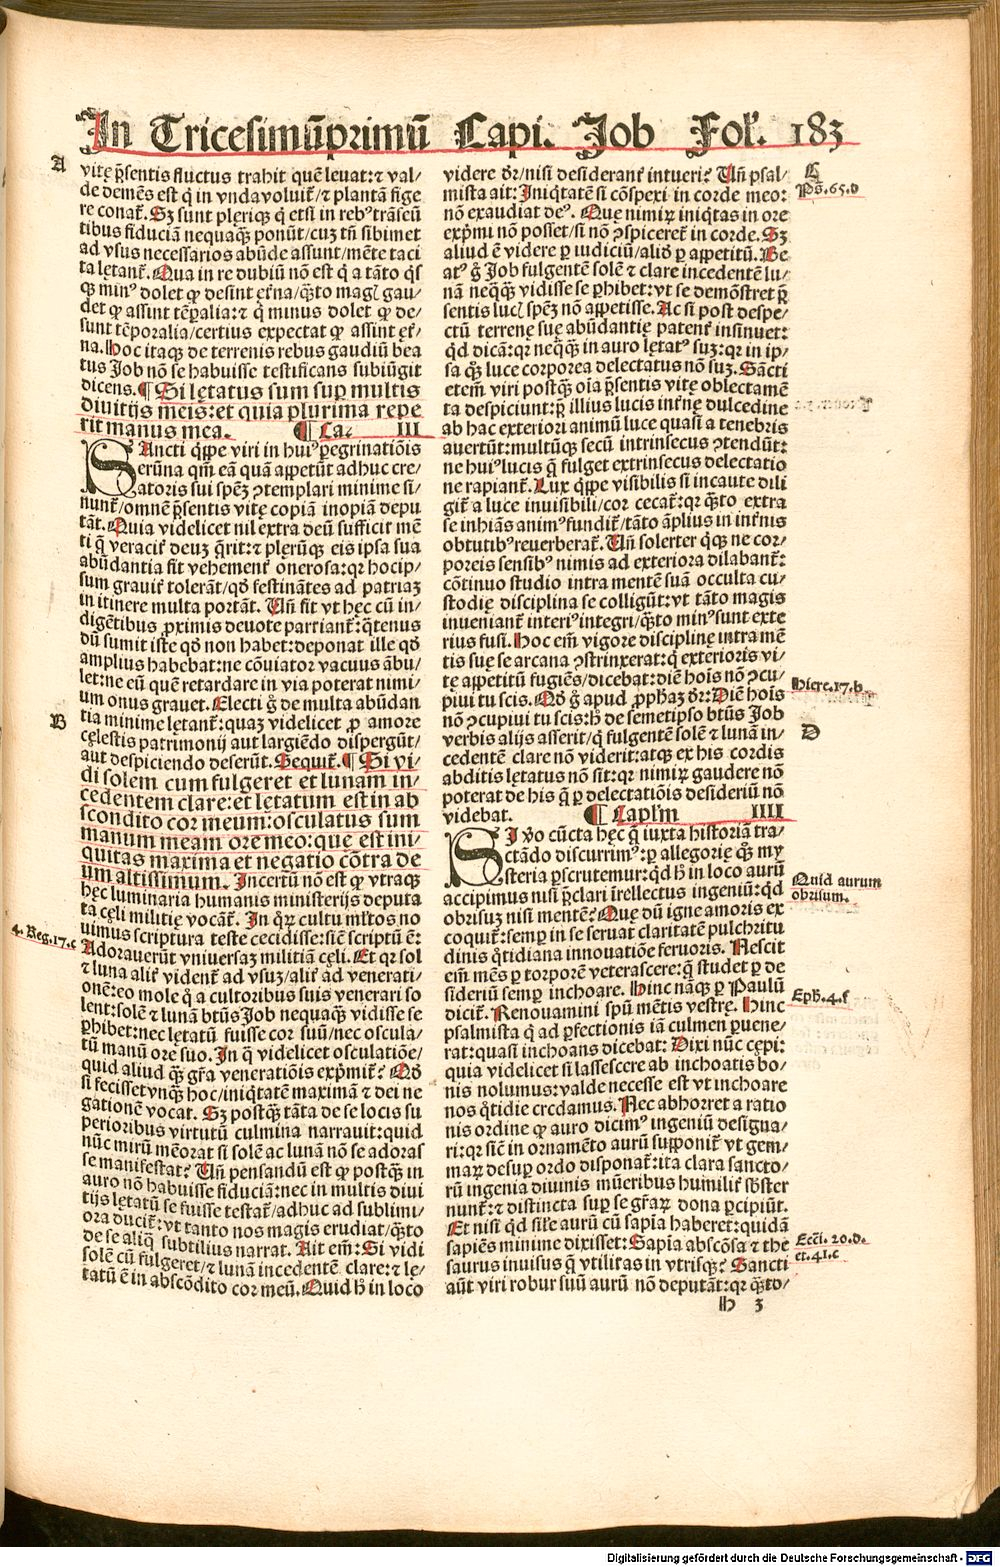 In Tricesimūprimū Capi. Job Fol. 183
A
vitę p̄sentis fluctus trahit quē leuat: ⁊ val/
de demēs est q̇ in vnda voluit᷑/ ⁊ plantā fige
re conat᷑. Sꝫ sunt plęriqꝫ q̇ etsi in rebꝰ trāseū
tibus fiduciā nequaqꝫ ponūt/ cuz tn̄ sibimet
ad vsus necessarios abūde assunt/ mēte taci
ta lętant᷑. Qua in re dubiū nō est q̇ a tāto q̇s
qꝫ minꝰ dolet ꝙ desint ęt᷑na/ q̄ꝫto magꝭ gau/
det ꝙ assint tēꝑalia: ⁊ q̇ minus dolet ꝙ de/
sunt tēporalia/ certius expectat ꝙ assint ęt᷑/
na. Hoc itaqꝫ de terrenis rebus gaudiū bea
tus Job nō se habuisse testificans subiūgit
dicens. ¶ Si lętatus sum suꝑ multis
diuitijs meis: et quia plurima repe
rit manus mea. ¶ Ca. III
SAncti q̇ppe viri in huiꝰ ꝑegrinatiōis
ęrūna qm̄ eā quā appetūt adhuc cre/
atoris sui spēꝫ ↄtemplari minime si/
nunt᷑/ omnē p̄sentis vitę copiā inopiā depu
tāt. Quia videlicet nil extra deū sufficit mē
ti q̄ veracit᷑ deuꝫ q̄rit: ⁊ plęrūqꝫ eis ipsa sua
abūdantia fit vehement᷑ onerosa: qꝛ hocip/
sum grauit᷑ tolerāt/ qd̄ festinātes ad patriaꝫ
in itinere multa portāt. Un̄ fit vt hęc cū in/
digētibus ꝓximis deuote partiant᷑: q̄tenus
dū sumit iste qd̄ non habet: deponat ille qd̄
amplius habebat: ne cōuiator vacuus ābu/
let: ne eū quē retardare in via poterat nimi/
um onus grauet. Electi g̊ de multa abūdan
B
tia minime lętant᷑: quaꝫ videlicet ꝓ amore
cęlestis patrimonij aut largiēdo dispergūt/
aut despiciendo deserūt. Sequit᷑. ¶ Si vi/
di solem cum fulgeret et lunam in/
cedentem clare: et lętatum est in ab
scondito cor meum: osculatus sum
manum meam ore meo: que est ini/
quitas maxima et negatio cōtra de
um altissimum. Incertū nō est ꝙ vtraqꝫ
hęc luminaria humanis ministerijs deputa
ta cęli militię vocāt᷑. In qꝝ cultu ml̄tos no
uimus scriptura teste cecidisse: sic̄ scriptū ē:
4. Reg. 17. c
Adorauerūt vniuersaꝫ militiā cęli. Et qꝛ sol
⁊ luna alit᷑ vident᷑ ad vsuꝫ/ alit᷑ ad venerati/
onē: eo mole q̇ a cultoribus suis venerari so
lent: solē ⁊ lunā btūs Job nequaqꝫ vidisse se
ꝑhibet: nec lętatū fuisse cor suū/ nec oscula/
tū manū ore suo. In q̇ videlicet osculatiōe/
quid aliud qꝫ gr̄a veneratiōis exp̄mit᷑? Qd̄
si fecisset vnqꝫ hoc/ iniq̇tatē maximā ⁊ dei ne
gationē vocat. Sꝫ postqꝫ tāta de se locis su
perioribus virtutū culmina narrauit: quid
nūc mirū mēorat si solē ac lunā nō se adoras
se manifestat? Un̄ pensandū est ꝙ postqꝫ in
auro nō habuisse fiduciā: nec in multis diui
tijs lętatū se fuisse testat᷑/ adhuc ad sublimi/
ora ducit᷑: vt tanto nos magis erudiat/ q̄ꝫto
de se aliq̇ subtilius narrat. Ait em̄: Si vidi
solē cū fulgeret/ ⁊ lunā incedentē clare: ⁊ lę/
tatū ē in abscōdito cor meū. Quid h̄ in loco
C
videre dr̄/ nisi desiderant᷑ intueri? Un̄ psal/
Ps. 65. d
mista ait: Iniq̇tatē si cōspexi in corde meo:
nō exaudiat deꝰ. Que nimiꝝ iniq̇tas in ore
exp̄mi nō posset/ si nō ↄspiceret᷑ in corde. Sꝫ
aliud ē videre ꝑ iudiciū/ aliđ ꝑ appetitū. Be
atꝰ g̊ Job fulgentē solē ⁊ clare incedentē lu/
nā neqqꝫ vidisse se ꝑhibet: vt se demōstret p̄
sentis lucꝭ spēꝫ nō appetisse. Ac si post despe/
ctū terrenę suę abūdantię patent᷑ insinuet:
qd̄ dicā: qꝛ neqqꝫ in auro lętatꝰ suꝫ: qꝛ in ip/
sa qꝫ luce corporea delectatus nō suꝫ. Sācti
etem̄ viri postqꝫ oīa p̄sentis vitę oblectamē
ta despiciunt: ꝑ illius lucis int᷑nę dulcedine
ab hac exteriori animū luce quasi a tenebris
auertūt: multūqꝫ secū intrinsecus ↄtendūt:
ne huiꝰ lucis q̄ fulget extrinsecus delectatio
ne rapiant᷑. Lux q̇ppe visibilis si incaute dili
git᷑ a luce inuisibili/ cor cecat᷑: qꝛ q̄ꝫto extra
se inhiās animꝰ fundit᷑/ tāto āplius in int᷑nis
obtutibꝰ reuerberat᷑. Un̄ solerter q̇qꝫ ne cor/
poreis sensibꝰ nimis ad exteriora dilabant᷑:
cōtinuo studio intra mentē suā occulta cu/
stodię disciplina se colligūt: vt tāto magis
inueniant᷑ interiꝰ integri/ q̄ꝫto minꝰ sunt exte
rius fusi. Hoc em̄ vigore disciplinę intra mē
tis suę se arcana ↄstrinxerat: q̇ exterioris vi/
tę appetitū fugiēs/ dicebat: diē hoīs nō ↄcu/
Hiere. 17. b
piui tu scis. Qd̄ g̊ apud ꝓph̄aꝫ dr̄: Diē hoīs
nō ↄcupiui tu scis: h̊ de semetipso btūs Job
D
verbis alijs asserit/ q̇ fulgentē solē ⁊ lunā in/
cedentē clare nō viderit: atqꝫ ex his cordis
abditis lętatus nō sit: qꝛ nimiꝝ gaudere nō
poterat de his q̄ ꝑ delectatiōis desideriū nō
videbat. ¶ Capl̄m IIII
SI v̊o cūcta hęc q̄ iuxta historiā tra/
ctādo discurrimꝰ: ꝑ allegorię qꝫ my
steria ꝑscrutemur: qd̄ h̄ in loco aurū
Quid aurum
obrisum.
accipimus nisi p̄clari īn̄tellectus ingeniū: qd̄
obrisuꝫ nisi mentē? Quę dū igne amoris ex
coquit᷑: semꝑ in se seruat claritatē pulchritu
dinis q̇tidiana innouatiōe feruoris. Nescit
em̄ mēs ꝑ torporē veterascere: q̄ studet ꝑ de
sideriū semꝑ inchoare. Hinc nāqꝫ ꝑ Paulū
Eph. 4. f
dicit᷑. Renouamini spū mētis vestrę. Hinc
psalmista q̇ ad ꝑfectionis iā culmen ꝑuene/
rat: quasi inchoans dicebat: Dixi nūc cępi:
quia videlicet si lassescere ab inchoatis bo/
nis nolumus: valde necesse est vt inchoare
nos q̊tidie credamus. Nec abhorret a ratio
nis ordine ꝙ auro dicimꝰ ingeniū designa/
ri: qꝛ sic̄ in ornamēto aurū supponit᷑ vt gem/
maꝝ desuꝑ ordo disponat᷑: ita clara sancto/
rū ingenia diuinis mūeribus humilit᷑ sb̄ster
nunt᷑: ⁊ distincta suꝑ se gr̄aꝝ dona ꝑcipiūt.
Et nisi qd̄ sil̄e aurū cū sapīa haberet: quidā
Ecci. 20. d.
sapiēs minime dixisset: Sapīa abscōsa ⁊ the
et. 41. c
saurus inuisus q̄ vtilitas in vtrisqꝫ? Sancti
aūt viri robur suū aurū nō deputāt: qꝛ q̄ꝫto/
H 3
Digitalisierung gefördert durch die Deutsche Forschungsgemeinschaft - DFG